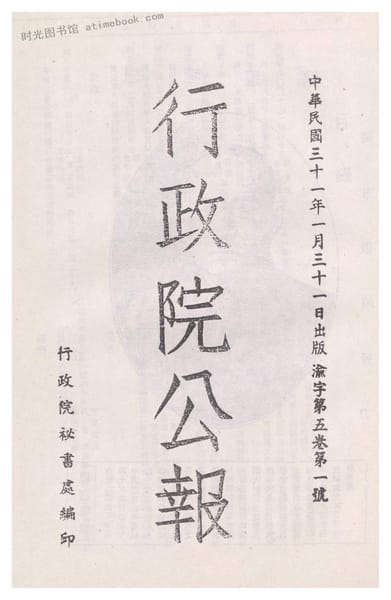 时光图书馆 atimebook.com
中華民國三十一年一月三十一日出版 渝字第五卷第一號
行政院公報
行政院祕書處編印